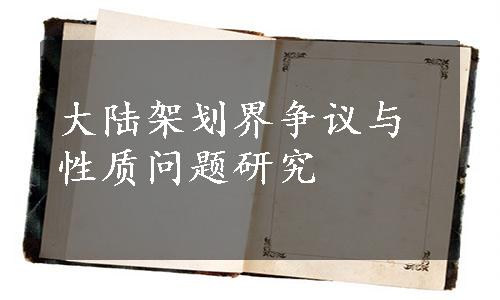 大陆架划界争议与
性质问题研究